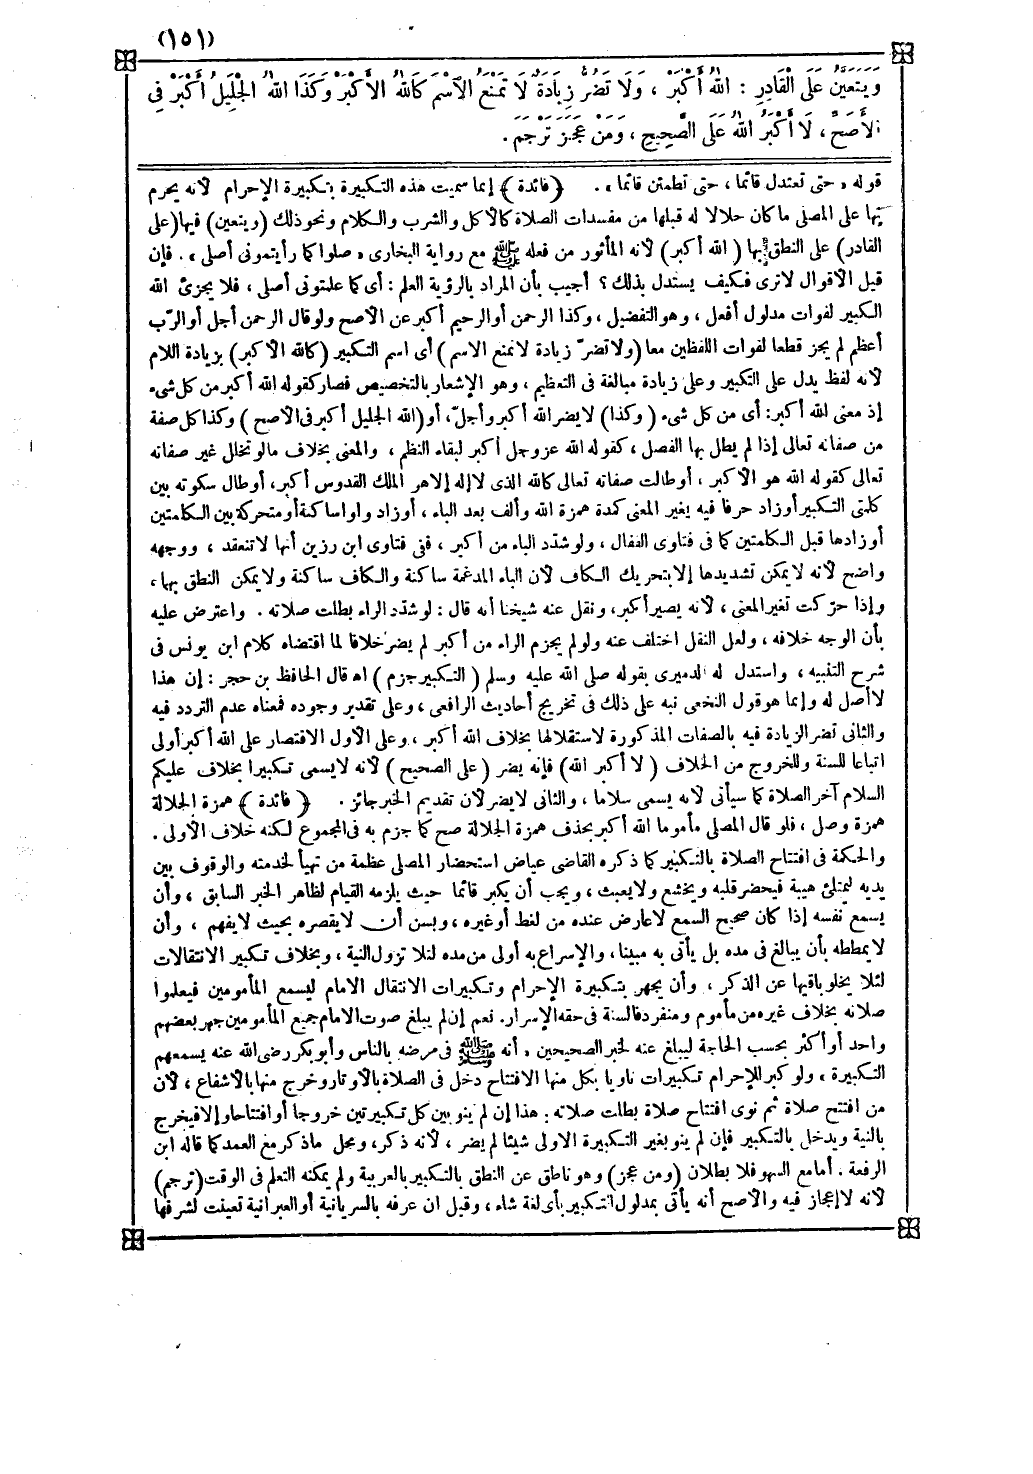 (١٥١)
وَيَتَعَيَّنُ عَلَى الْقَادِرِ : اللهُ أَكْبَرُ ، وَلَا تَضُرُّ زِيَادَةٌ لَا تَمْنَعُ الِاسْمَ كَاللهُ الأَكْبَرُ وَكَذَا اللهُ الْجَلِيلُ أَكْبَرُ فِي
الأَصَحِّ ، لَا أَكْبَرُ اللهُ عَلَى الصَّحِيحِ ، وَمَنْ عَجَزَ تَرْجَمَ .
قوله « حتى تعتدل قائما ، حتى تطمئن قائما » . ﴿ فائدة ﴾ إنما سميت هذه التكبيرة بتكبيرة الإحرام لأنه يحرم
بها على المصلى ما كان حلالا له قبلها من مفسدات الصلاة كالأكل والشرب والكلام ونحو ذلك (ويتعين) فيها (على
القادر) على النطق بها ( الله أكبر) لأنه المأثور من فعله ﷺ مع رواية البخارى « صلوا كما رأيتمونى أصلى » . فإن
قيل الأقوال لا ترى فكيف يستدل بذلك ؟ أجيب بأن المراد بالرؤية العلم : أى كما علمتونى أصلى ، فلا يجزئ الله
الكبير لفوات مدلول أفعل ، وهو التفضيل ، وكذا الرحمن أو الرحيم أكبر عن الأصح ولو قال الرحمن أجل أو الرب
أعظم لم يجز قطعا لفوات اللفظين معا (ولا تضر زيادة لا تمنع الاسم ) أى اسم التكبير (كالله الأكبر) بزيادة اللام
لأنه لفظ يدل على التكبير وعلى زيادة مبالغة فى التعظيم ، وهو الإشعار بالتخصيص فصار كقوله الله أكبر من كل شىء
إذ معنى الله أكبر : أى من كل شىء ( وكذا) لا يضر الله أكبر وأجلّ، أو (الله الجليل أكبر فى الأصح ) وكذا كل صفة
من صفاته تعالى إذا لم يطل بها الفصل ، كقوله الله عز وجل أكبر لبقاء النظم ، والمعنى بخلاف ما لو تخلل غير صفاته
تعالى كقوله الله هو الأكبر ، أو طالت صفاته تعالى كالله الذى لا إله إلا هو الملك القدوس أكبر، أو طال سكوته بين
كلمتى التكبير أو زاد حرفا فيه يغير المعنى كمدة همزة الله وألف بعد الباء ، أو زاد واوا ساكنة أو متحركة بين الكلمتين
أو زادها قبل الكلمتين كما فى فتاوى القفال ، ولو شدّد الباء من أكبر ، ففى فتاوى ابن رزين أنها لا تنعقد ، ووجهه
واضح لأنه لا يمكن تشديدها إلا بتحريك الكاف لأن الباء المدغمة ساكنة والكاف ساكنة ولا يمكن النطق بها ،
وإذا حرّكت تغير المعنى ، لأنه يصير أكبر، ونقل عنه شيخنا أنه قال : لو شدّد الراء بطلت صلاته . واعترض عليه
بأن الوجه خلافه ، ولعل النقل اختلف عنه ولو لم يجزم الراء من أكبر لم يضر خلافا لما اقتضاه كلام ابن يونس فى
شرح التنبيه ، واستدل له الدميرى بقوله صلى الله عليه وسلم ( التكبير جزم ) اه قال الحافظ بن حجر : إن هذا
لا أصل له وإنما هو قول النخعى نبه على ذلك فى تخريج أحاديث الرافعى ، وعلى تقدير وجوده فمعناه عدم التردد فيه
والثانى تضر الزيادة فيه بالصفات المذكورة لاستقلالها بخلاف الله أكبر ، وعلى الأول الاقتصار على الله أكبر أولى
اتباعا للسنة وللخروج من الخلاف ( لا أكبر الله) فإنه يضر (على الصحيح ) لأنه لا يسمى تكبيرا بخلاف عليكم
السلام آخر الصلاة كما سيأتى لأنه يسمى سلاما ، والثانى لا يضر لأن تقديم الخبر جائز . ﴿ فائدة ﴾ همزة الجلالة
همزة وصل ، فلو قال المصلى مأموما الله أكبر بحذف همزة الجلالة صح كما جزم به فى المجموع لكنه خلاف الأولى .
والحكمة فى افتتاح الصلاة بالتكبير كما ذكره القاضى عياض استحضار المصلى عظمة من تهيأ لخدمته والوقوف بين
يديه ليمتلئ هيبة فيحضر قلبه ويخشع ولا يعبث ، ويجب أن يكبر قائما حيث يلزمه القيام لظاهر الخبر السابق ، وأن
يسمع نفسه إذا كان صحيح السمع لا عارض عنده من لغط أو غيره ، ويسن أن لا يقصره بحيث لا يفهم ، وأن
لا يمططه بأن يبالغ فى مده بل يأتى به مبينا ، والإسراع به أولى من مده لئلا تزول النية ، وبخلاف تكبير الانتقالات
لئلا يخلو باقيها عن الذكر ، وأن يجهر بتكبيرة الإحرام وتكبيرات الانتقال الامام ليسمع المأمومين فيعلموا
صلاته بخلاف غيره من مأموم ومنفرد فالسنة فى حقه الإسرار. نعم إن لم يبلغ صوت الامام جميع المأمومين جهر بعضهم
واحد أو أكثر بحسب الحاجة ليبلغ عنه لخبر الصحيحين « أنه ﷺ فى مرضه بالناس وأبو بكر رضى الله عنه يسمعهم
التكبيرة » ولو كبر للإحرام تكبيرات ناويا بكل منها الافتتاح دخل فى الصلاة بالأوتار وخرج منها بالأشفاع ، لأن
من افتتح صلاة ثم نوى افتتاح صلاة بطلت صلاته . هذا إن لم ينو بين كل تكبيرتين خروجا أو افتتاحا وإلا فيخرج
بالنية ويدخل بالتكبير فإن لم ينو بغير التكبيرة الأولى شيئا لم يضر ، لأنه ذكر ، ومحل ما ذكر مع العمد كما قاله ابن
الرفعة . أما مع السهو فلا بطلان (ومن عجز) وهو ناطق عن النطق بالتكبير بالعربية ولم يمكنه التعلم فى الوقت (ترجم)
لأنه لا إعجاز فيه والأصح أنه يأتى بمدلول التكبير بأى لغة شاء ، وقيل ان عرفه بالسريانية أو العبرانية تعينت لشرفها